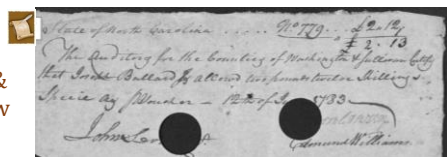 &
w
State of North Carolina ..... No. 779 .. £2.12
£ 2.13
The Auditors for the Counties of Washington & Sullivan Certify
that Joseph Ballard is allowed two pounds twelve Shillings
Specie as Voucher - 12th of 1783
John
Edmund Williams